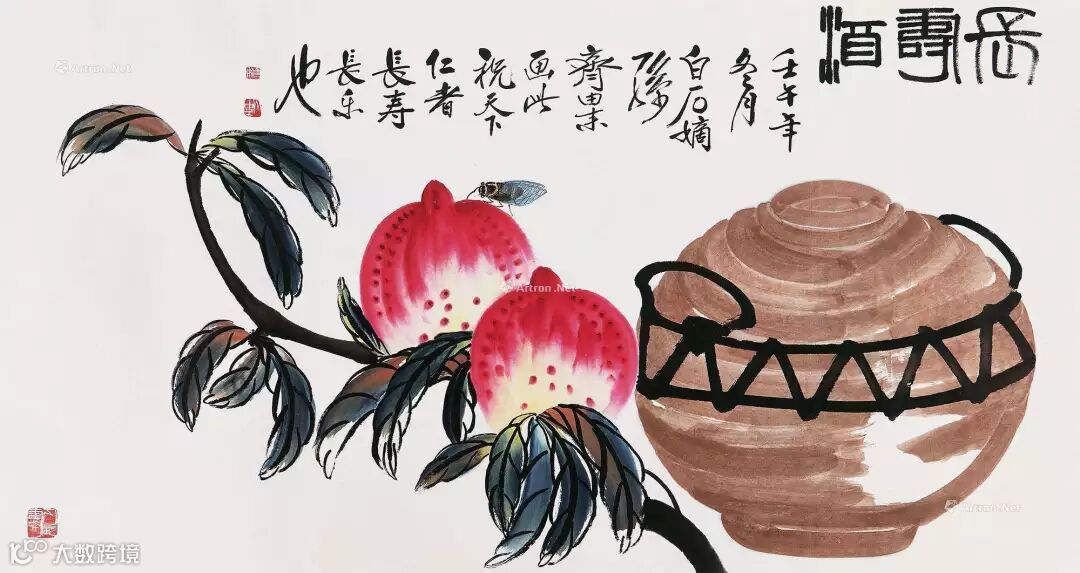 長壽酒
壬午年
冬月
白石嫡
孫
齊秉
画此
祝天下
仁者
長寿
長乐
也
Artron.Net
Artron.Net
Artron.Net
Artron.Net
大数跨境